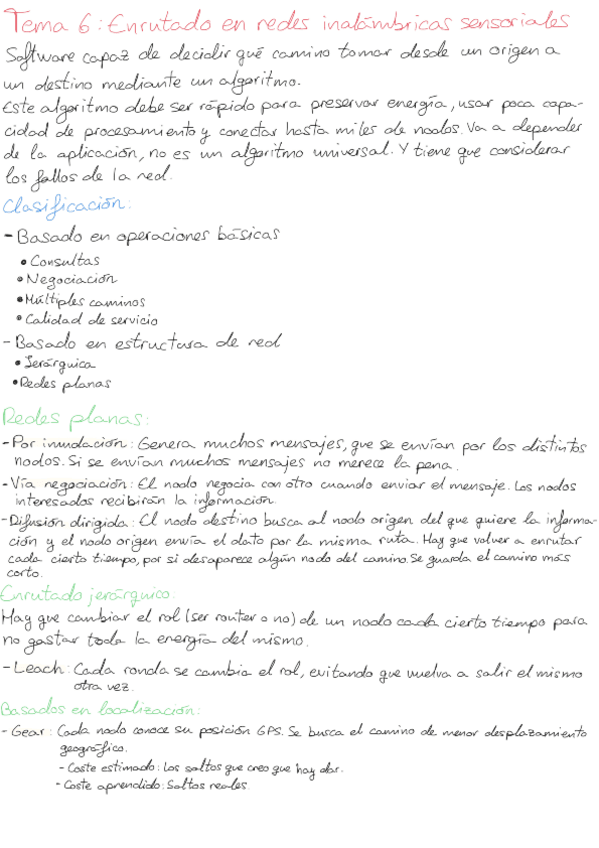 Tema 6: Enrutado en redes inalámbricas sensoriales
Software capaz de decidir qué camino tomar desde un origen a
un destino mediante un algoritmo.
Este algoritmo debe ser rápido para preservar energía, usar poca capa-
cidad de procesamiento y conectar hasta miles de nodos. Va a depender
de la aplicación, no es un algoritmo universal. Y tiene que considerar
los fallos de la red.
Clasificación:
- Basado en operaciones básicas
• Consultas
• Negociación
• Múltiples caminos
• Calidad de servicio
- Basado en estructura de red
• Jerárquica
• Redes planas
Redes planas:
- Por inundación: Genera muchos mensajes, que se envían por los distintos
nodos. Si se envían muchos mensajes no merece la pena.
- Vía negociación: El nodo negocia con otro cuando enviar el mensaje. Los nodos
interesados recibirán la información.
- Difusión dirigida: El nodo destino busca al nodo origen del que quiere la informa-
ción y el nodo origen envía el dato por la misma ruta. Hay que volver a enrutar
cada cierto tiempo, por si desaparece algún nodo del camino. Se guarda el camino más
corto.
Enrutado jerárquico:
Hay que cambiar el rol (ser router o no) de un nodo cada cierto tiempo para
no gastar toda la energía del mismo.
- Leach: Cada ronda se cambia el rol, evitando que vuelva a salir el mismo
otra vez.
Basados en localización:
- Gear: Cada nodo conoce su posición GPS. Se busca el camino de menor desplazamiento
geográfico.
- Coste estimado: Los saltos que creo que hay dar.
- Coste aprendido: Saltos reales.